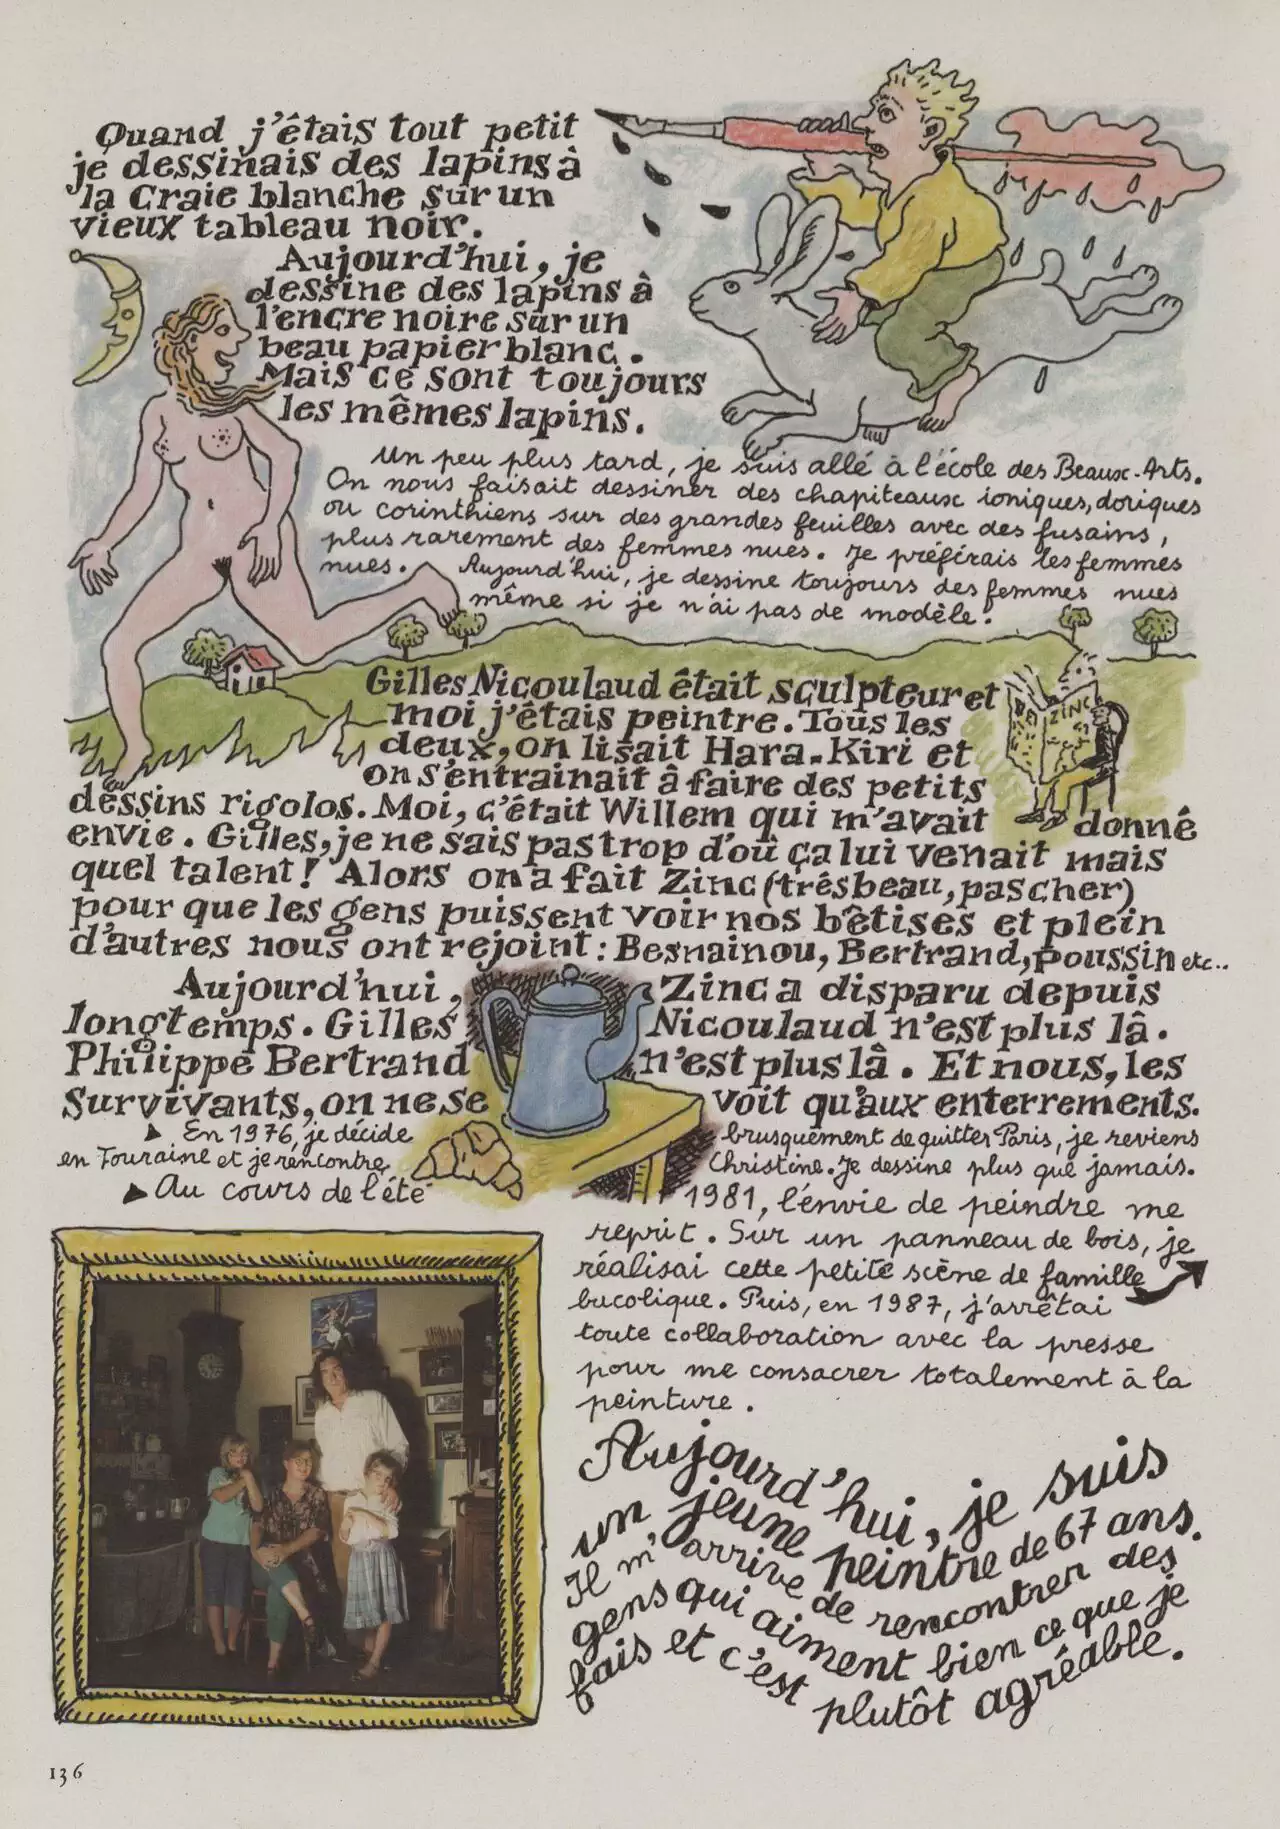 Quand j'étais tout petit
je dessinais des lapins à
la craie blanche sur un
vieux tableau noir.
Aujourd'hui, je
dessine des lapins à
l'encre noire sur un
beau papier blanc.
Mais ce sont toujours
les mêmes lapins.
Un peu plus tard, je suis allé à l'école des Beaux-Arts.
On nous faisait dessiner des chapiteaux ioniques, doriques
ou corinthiens sur des grandes feuilles avec des fusains,
plus rarement des femmes nues. Je préférais les femmes
nues. Aujourd'hui, je dessine toujours des femmes nues
même si je n'ai pas de modèle.
Gilles Nicoulaud était sculpteur et
moi j'étais peintre. Tous les
deux, on lisait Hara-Kiri et
on s'entrainait à faire des petits
dessins rigolos. Moi, c'était Willem qui m'avait donné
envie. Gilles, je ne sais pas trop d'où ça lui venait mais
quel talent! Alors on a fait Zinc (très beau, pas cher)
pour que les gens puissent voir nos bêtises et plein
d'autres nous ont rejoint : Besnainou, Bertrand, Poussin etc..
ZINC
Aujourd'hui, Zinc a disparu depuis
longtemps. Gilles Nicoulaud n'est plus là.
Philippe Bertrand n'est plus là. Et nous, les
survivants, on ne se voit qu'aux enterrements.
En 1976, je décide brusquement de quitter Paris, je reviens
en Touraine et je rencontre Christine. Je dessine plus que jamais.
Au cours de l'été 1981, l'envie de peindre me
reprit. Sur un panneau de bois, je
réalisai cette petite scène de famille
bucolique. Puis, en 1987, j'arrêtai
toute collaboration avec la presse
pour me consacrer totalement à la
peinture.
Aujourd'hui, je suis
un jeune peintre de 67 ans.
Il m'arrive de rencontrer des
gens qui aiment bien ce que je
fais et c'est plutôt agréable.
136